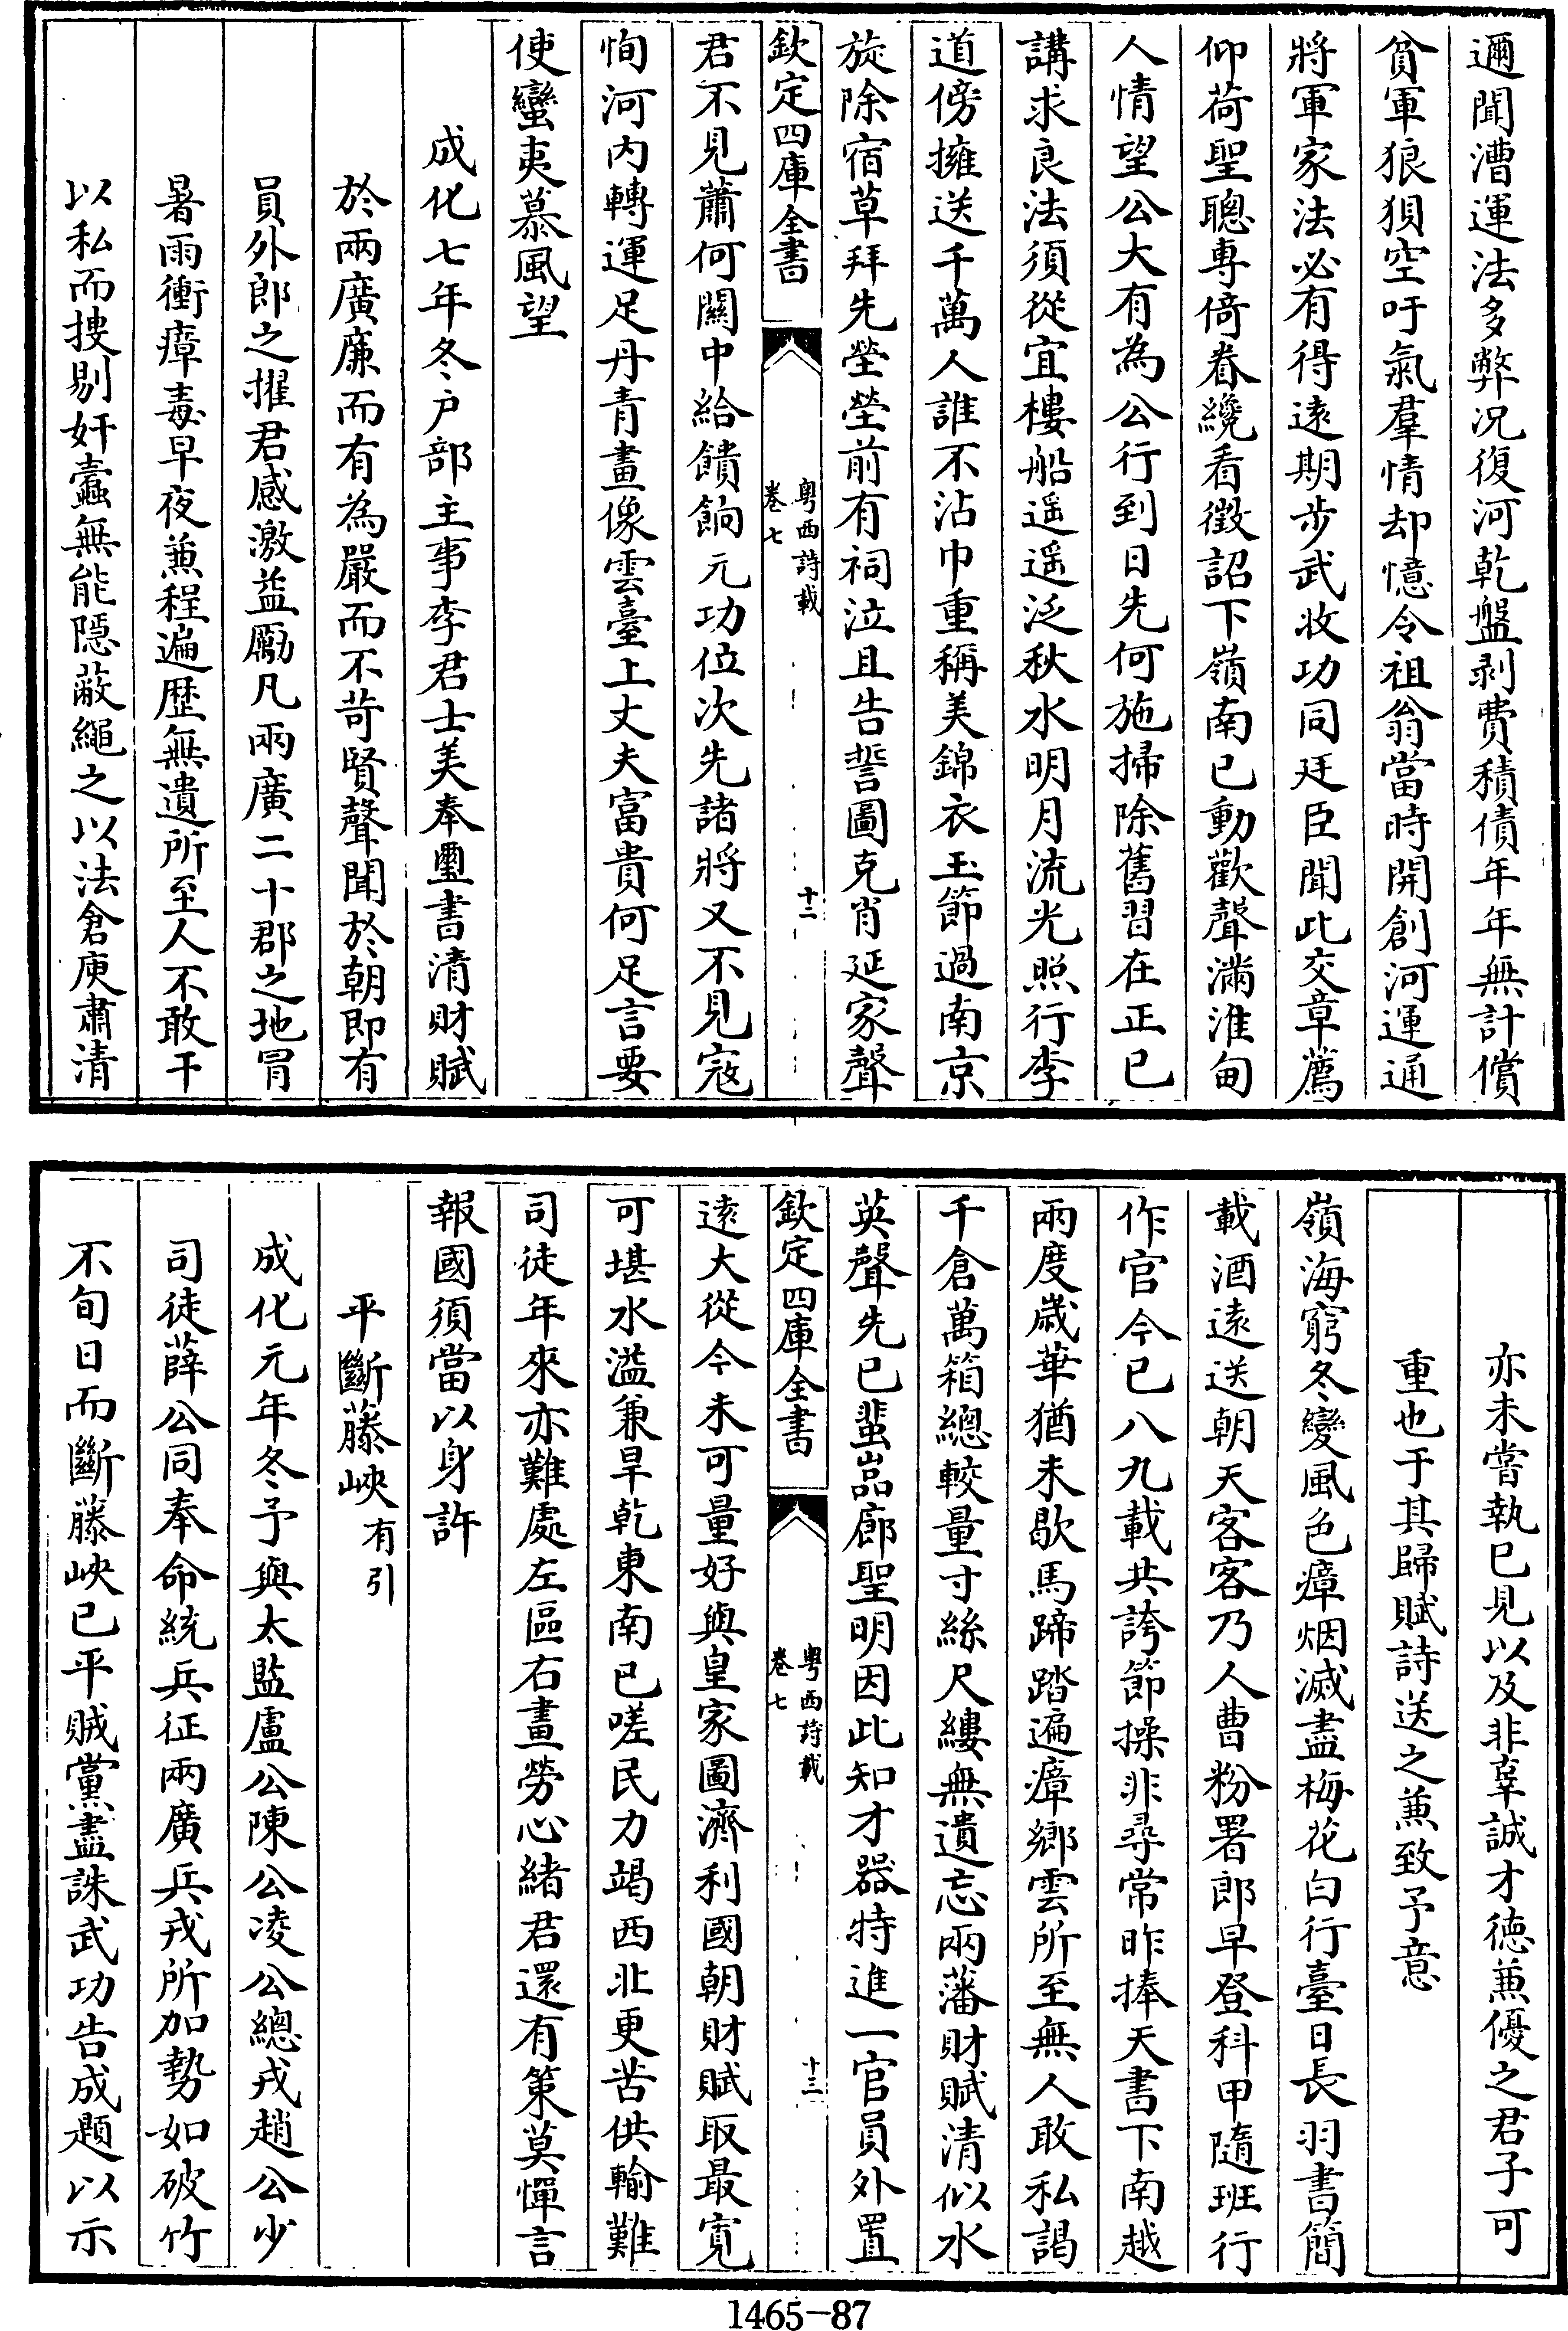 邇聞漕運法多弊况復河乾盤剥費積債年年無計償
貧軍狼狽空吁氣羣情却憶令祖翁當時開創河運通
將軍家法必有得逺期步武收功同廷臣聞此交章薦
仰荷聖聰專倚眷纔看徵詔下嶺南已動歡聲滿淮甸
人情望公大有為公行到日先何施掃除舊習在正已
講求良法須從宜樓船遥遥泛秋水明月流光照行李
道傍擁送千萬人誰不沾巾重稱美錦衣玉節過南京
旋除宿草拜先塋塋前有祠泣且告誓圖克肖延家聲
欽定四庫全書
粤西詩載
卷七
十二
君不見蕭何闗中給饋餉元功位次先諸將又不見宼
恂河内轉運足丹青畫像雲臺上丈夫富貴何足言要
使蠻夷慕風望
成化七年冬户部主事李君士美奉璽書清財賦
於兩廣廉而有為嚴而不苛賢聲聞於朝即有
員外郎之擢君感激益勵凡兩廣二十郡之地冐
暑雨衝瘴毒早夜兼程遍歴無遺所至人不敢干
以私而捜剔奸蠧無能隠蔽繩之以法倉庾肅清
亦未嘗執已見以及非辜誠才徳兼優之君子可
重也于其歸賦詩送之兼致予意
嶺海窮冬變風色瘴烟滅盡梅花白行臺日長羽書簡
載酒逺送朝天客客乃人曹粉署郎早登科甲隨班行
作官今已八九載共誇節操非尋常昨捧天書下南越
兩度歳華猶未歇馬蹄踏遍瘴鄉雲所至無人敢私謁
千倉萬箱總較量寸絲尺縷無遺忘兩藩財賦清似水
英聲先已蜚喦廊聖明因此知才器特進一官員外置
欽定四庫全書
粤西詩載
卷七
十三
逺大從今未可量好與皇家圖濟利國朝財賦取最寛
可堪水溢兼旱乾東南已嗟民力竭西北更苦供輸難
司徒年來亦難處左區右畫勞心緒君還有策莫憚言
報國須當以身許
平斷藤峽有引
成化元年冬予與太監盧公陳公凌公總戎趙公少
司徒薛公同奉命統兵征兩廣兵戎所加勢如破竹
不旬日而斷藤峽已平賊黨盡誅武功告成題以示
1465-87